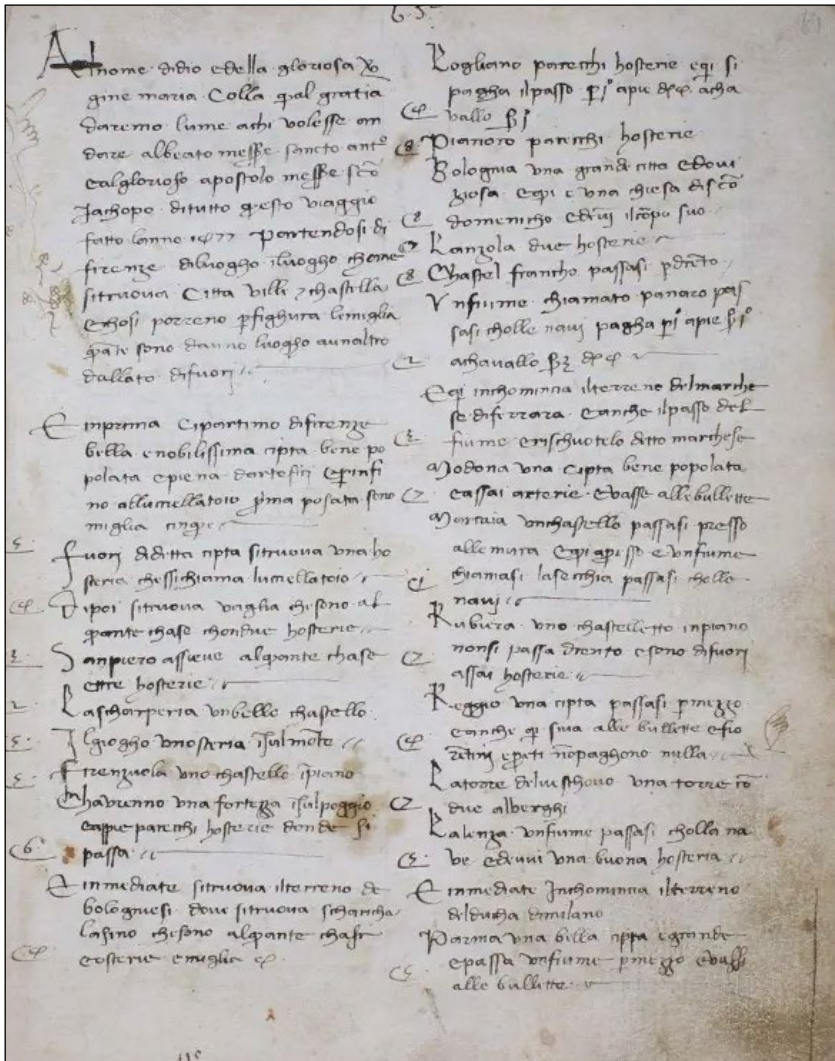 Al nome didio edella gloriosa v
gine maria Colla qual gratia
daremo lume achi volesse an
dare albeato messe sancto ant°
ealglorioso apostolo messe sco
Jachopo ditutto questo viaggio
fatto lanno 1477 Partendosi di
firenze diluogho iluogho chome
sitruova Citta ville chastella
echosi porreno pfighura lemiglia
quate sono dauno luogho aunaltro
dallato difuori
E inprima Cipartimo difirenze
bella enobilissima cipta bene po
polata epiena dartefici
no allucciellatoio pma posata sono
miglia cinque
fuori didetta cipta sitruova una ho
steria chessichiama luccellatoio
Dipoi sitruova vaglia chesono al
quante chase chondue hosterie
Sanpiero assieve alquante chase
ettre hosterie
Lascharperia unbello chastello
Ilgiogho unosteria isulmote
Firenzuola uno chastello ipiano
Chavrenno una fortezza isulpoggio
eappie parecchi hosterie donde si
6 passa
E inmediate sitruova ilterreno de
bolognesi dove sitruova scharicha
lasino chesono alquante chase
eosterie emiglia
Logliano parecchi hosterie equi si
pagha ilpasso apie acha
vallo
8 Pianoro parecchi hosterie
Bolognia una grande citta edovi
ziosa equi e una chiesa disco
8 domenicho edrvi ilcopo suo
Lanzola due hosterie
8 Chastel francho passasi pdreto
Vnfiume chiamato panaro pas
sasi cholle navi pagha apie
2 achavallo
Equi inchomincia ilterreno delmarche
se diferrara eanche ilpasso del
fiume erischuotelo detto marchese
Modona una cipta bene popolata
eassai arterie evasse allebullette
Marzaia unchastello passasi presso
allemura equi apsso e unfiume
chiamasi lasecchia passasi cholle
navi
Rubiera uno chastelletto inpiano
nonsi passa drento esono difuori
assai hosterie
Reggio una cipta passasi pmezzo
eanche qui siva alle bullette efio
retini epreti nopaghono nulla
Latorre delveschovo una torre co
due alberghi
Lalenza unfiume passasi cholla na
ve edevvi una buona hosteria
E inmediate Inchomincia ilterreno
delducha dimilano
Parma una bella cipta egrande
epassa unfiume pmezzo evassi
alle bullette